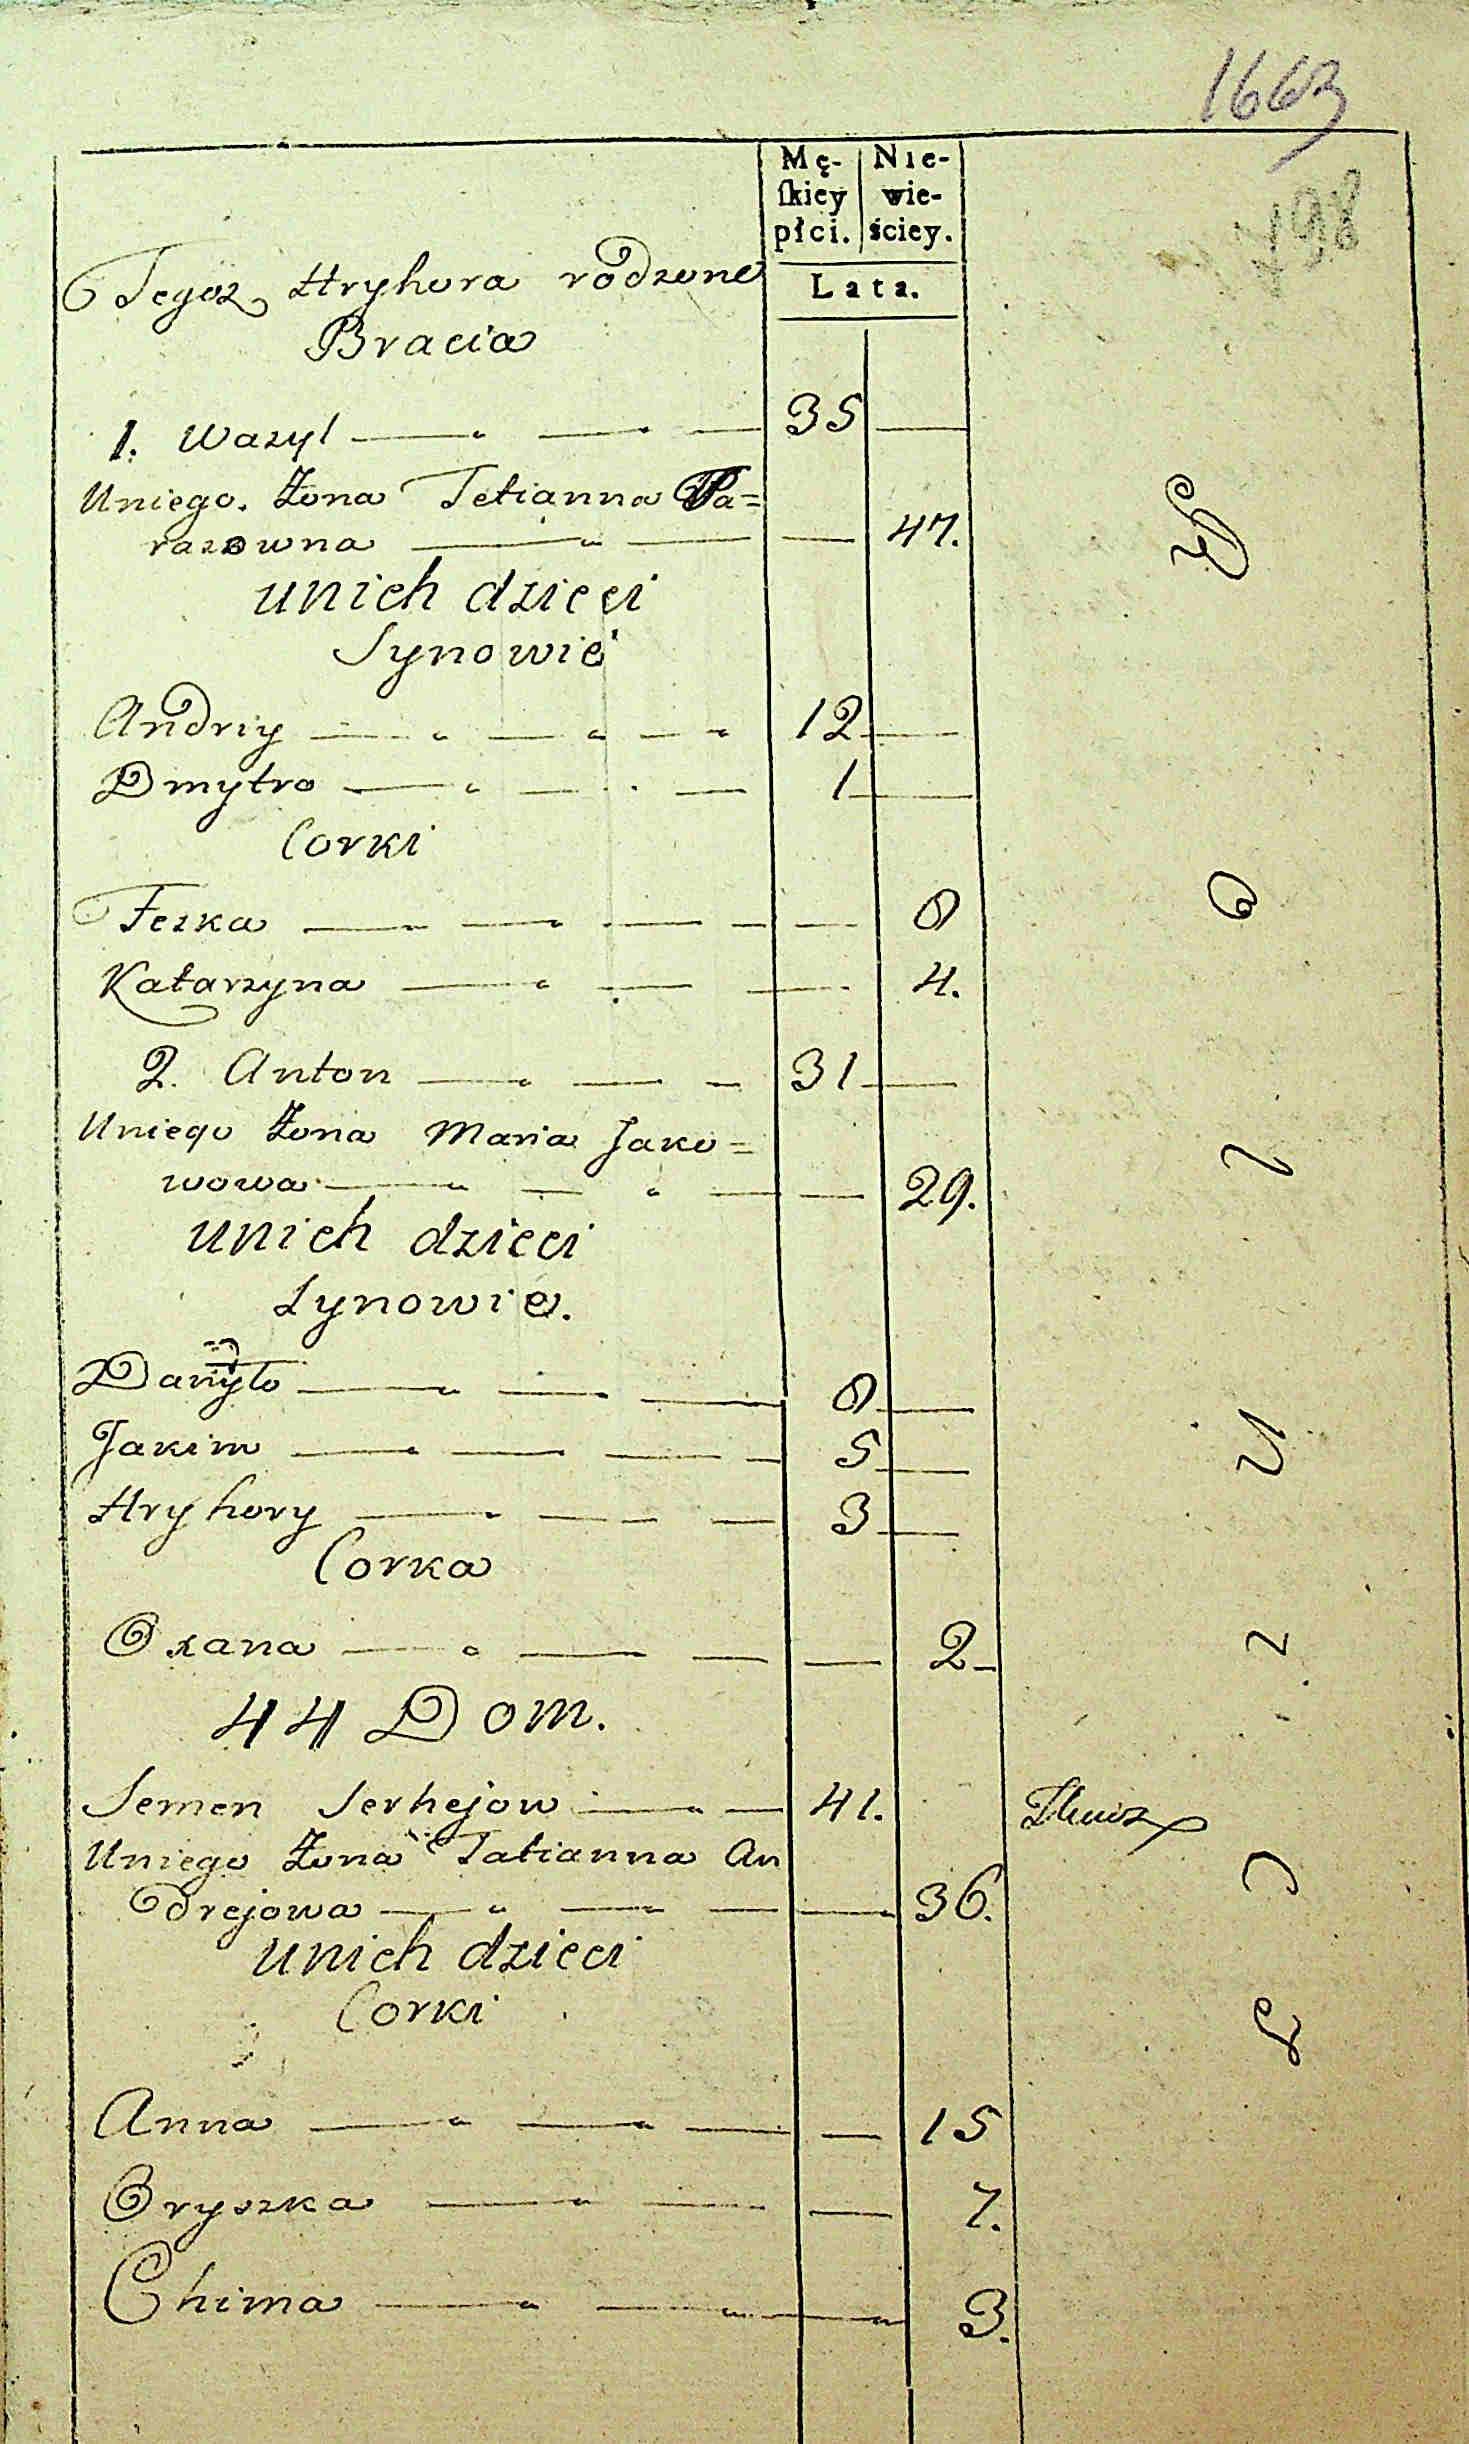 1663
198
Mę-
skiey
płci.
Nie-
wie-
ściey.
Lata.
Tegoz Hryhora rodzone
Bracia
1. Wazyl 35
Uniego Żona Tetianna Ta=
razowna 47.
unich dzieci
Synowie
Andriy 12
Dmytro 1
Corki
Feska 8
Katarzyna 4.
2. Anton 31
Uniego Żona Maria Jako=
wowa 29.
unich dzieci
Synowie.
Danyło 8
Jakim 5
Hryhory 3
Corka
Oxana 2
44 Dom.
Semen Serhejow 41.
Uniego Żona Tatianna An
drejowa 36.
unich dzieci
Corki
Anna 15
Oryszka 7.
Chima 3.